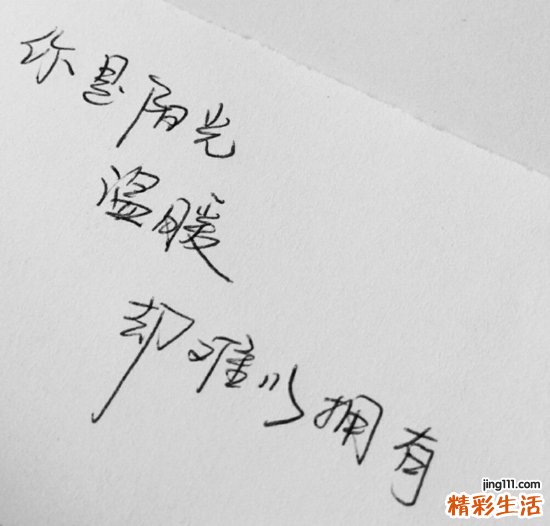 你是阳光
温暖
却难以拥有
jing111.com
精彩生活